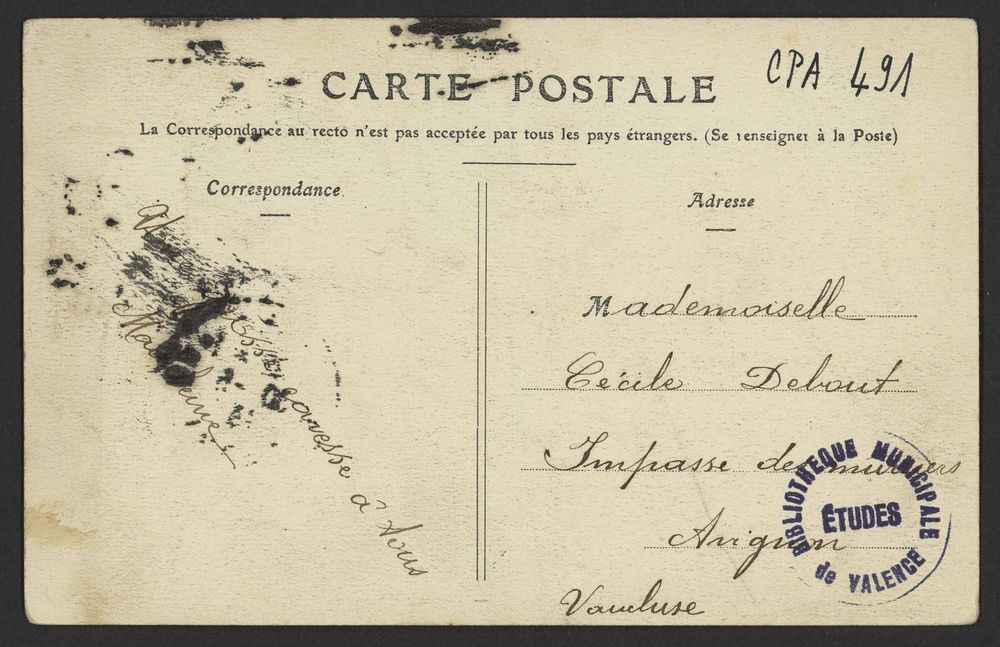 CPA 491
CARTE POSTALE
La Correspondance au recto n'est pas acceptée par tous les pays étrangers. (Se renseigner à la Poste)
Correspondance
caresse à tous
Adresse
Mademoiselle
Cécile Debout
Impasse des muriers
Avignon
Vaucluse
BIBLIOTHEQUE MUNICIPALE
ÉTUDES
de VALENCE